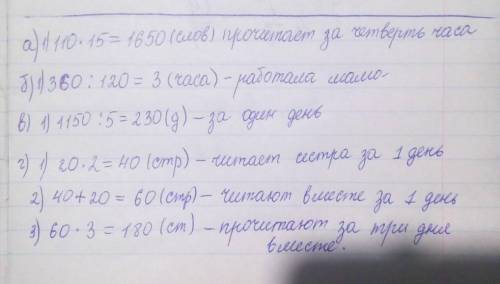 а) 1) 110 · 15 = 1650 (слов) прочитает за четверть часа
б) 1) 360 : 120 = 3 (часа) - работала мама
в) 1) 1150 : 5 = 230 (д) - за один день
г) 1) 20 · 2 = 40 (стр) - читает сестра за 1 день
2) 40 + 20 = 60 (стр) - читают вместе за 1 день
3) 60 · 3 = 180 (ст) - прочитают за три дня
вместе.